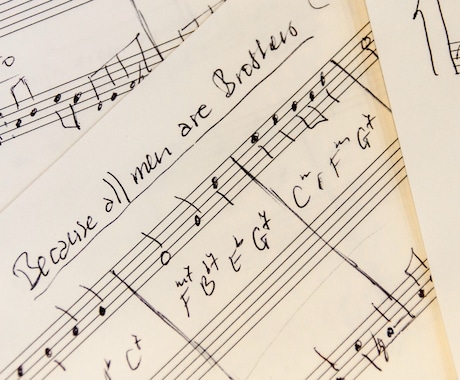 Because all men are Brothers
Fm7 Bb7 Eb G7
Cm Fm G7
C7